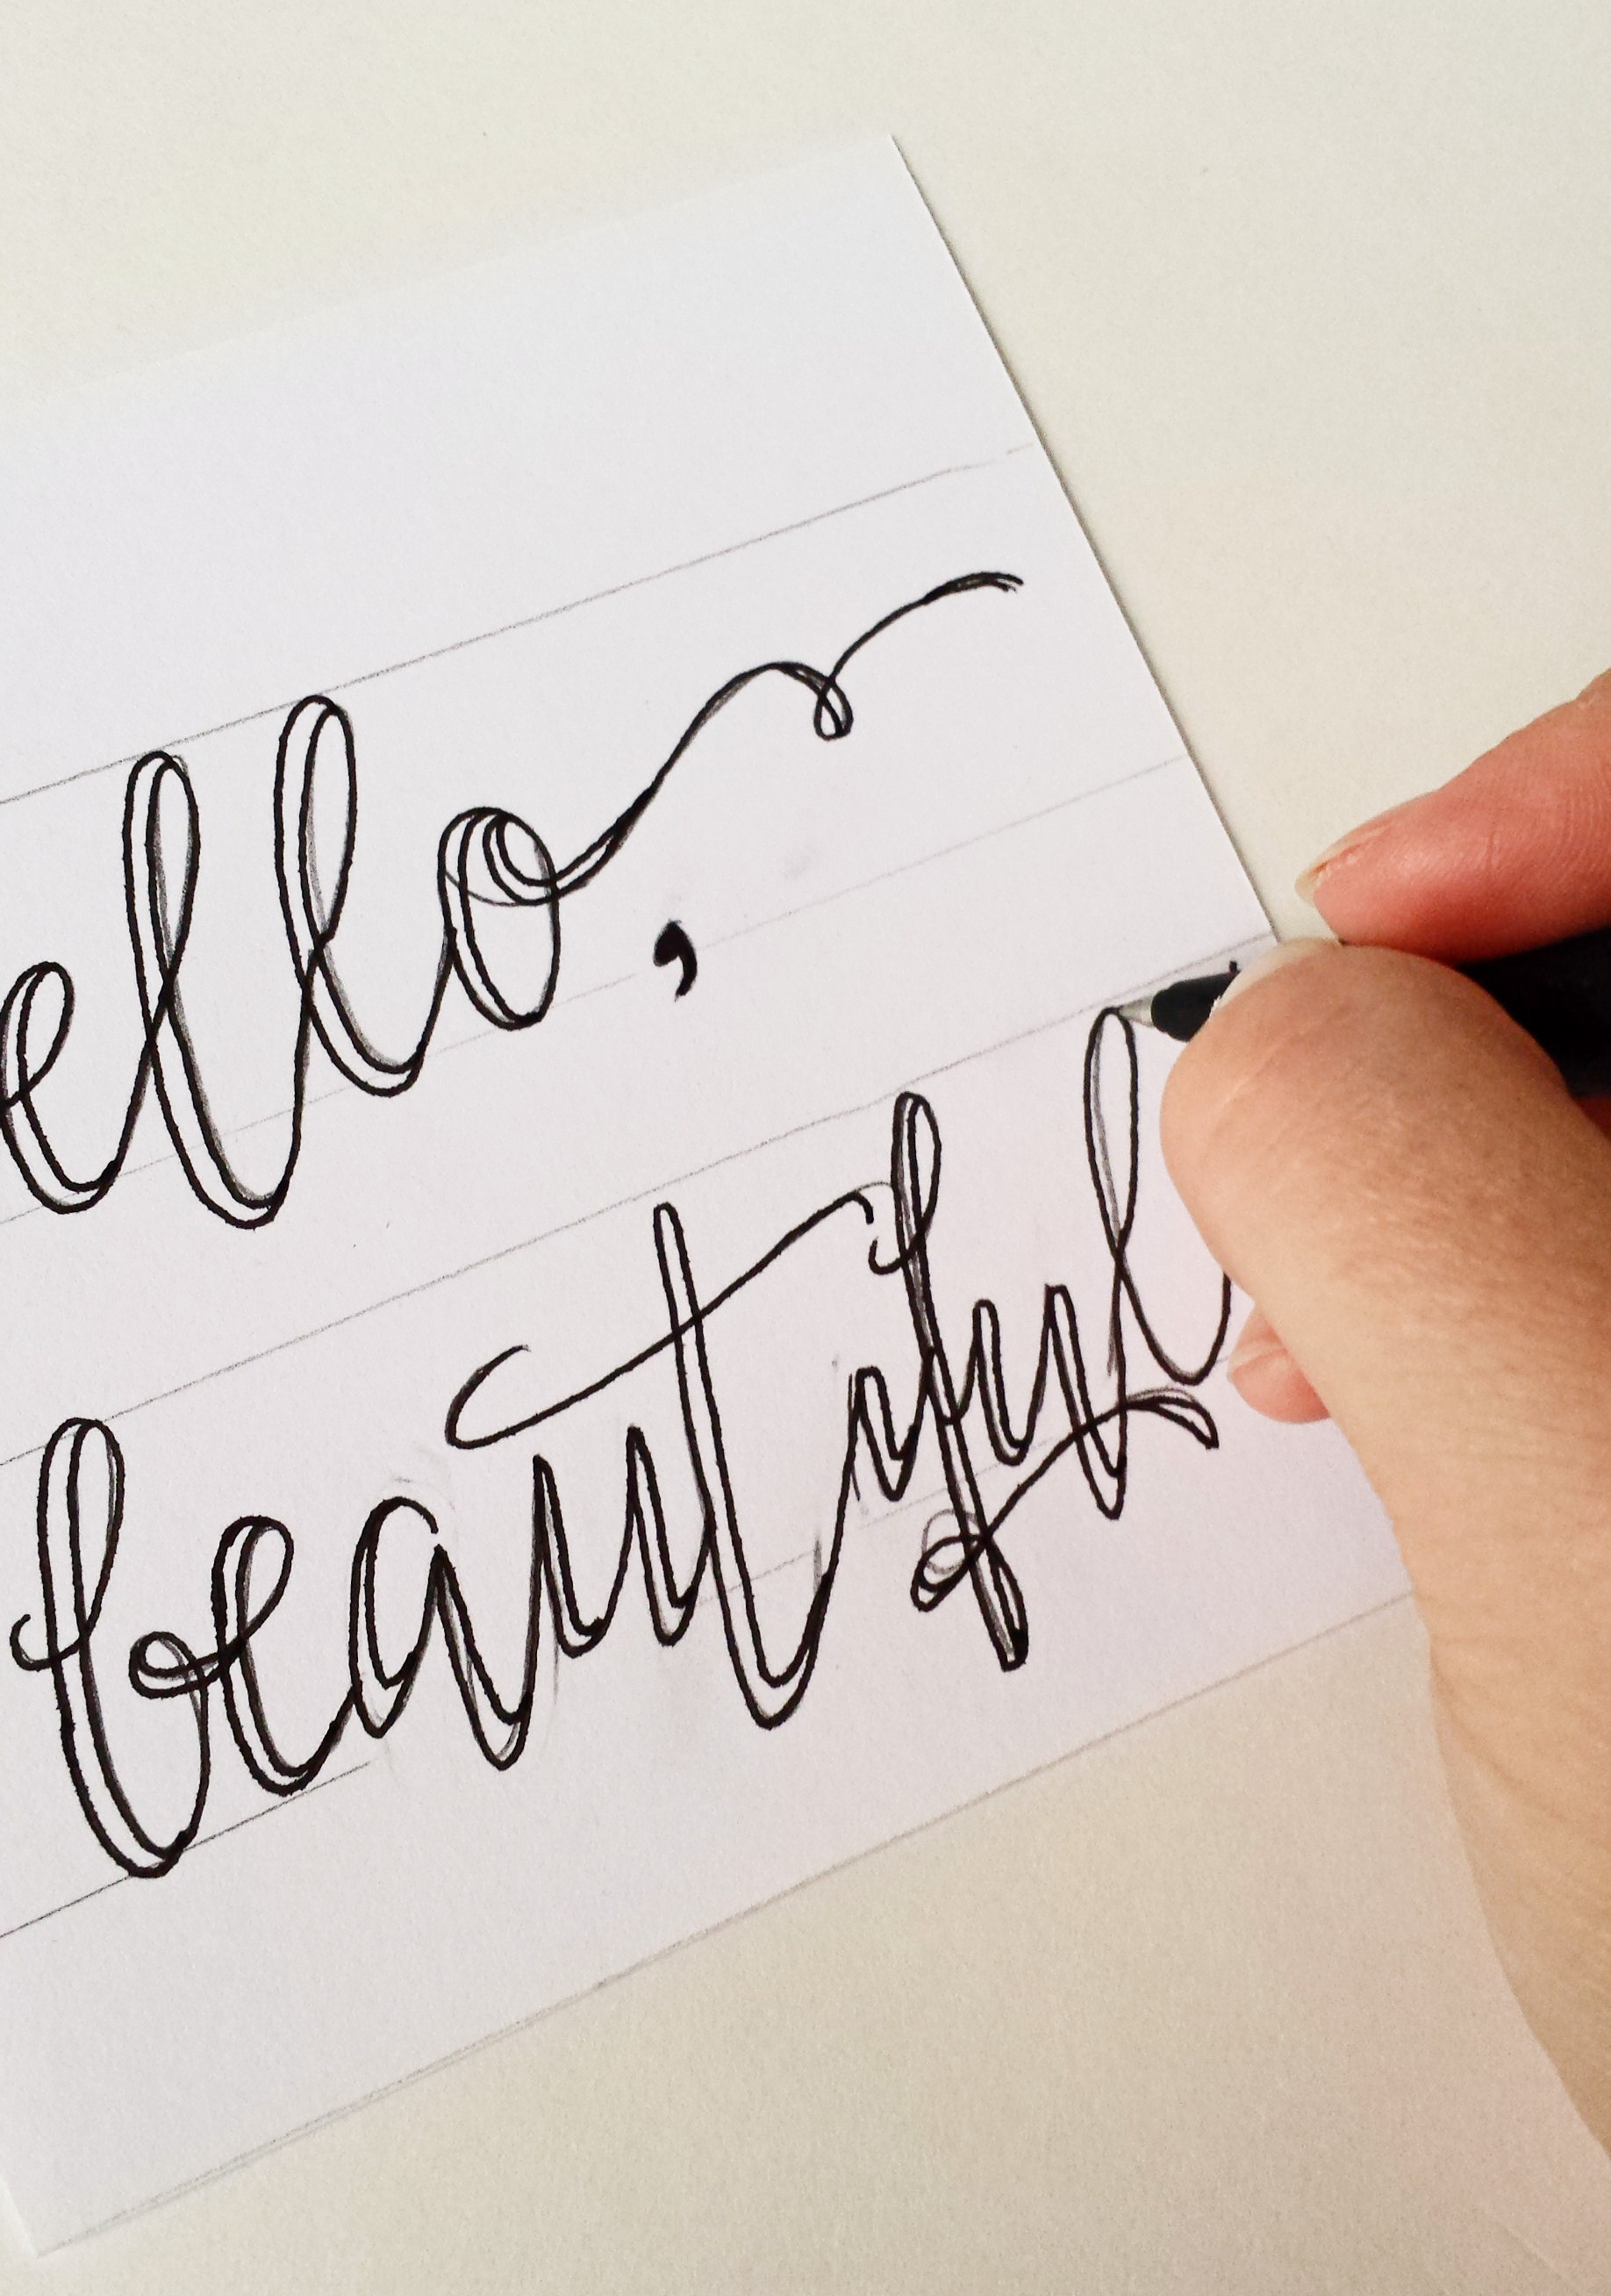 ello,
beautiful